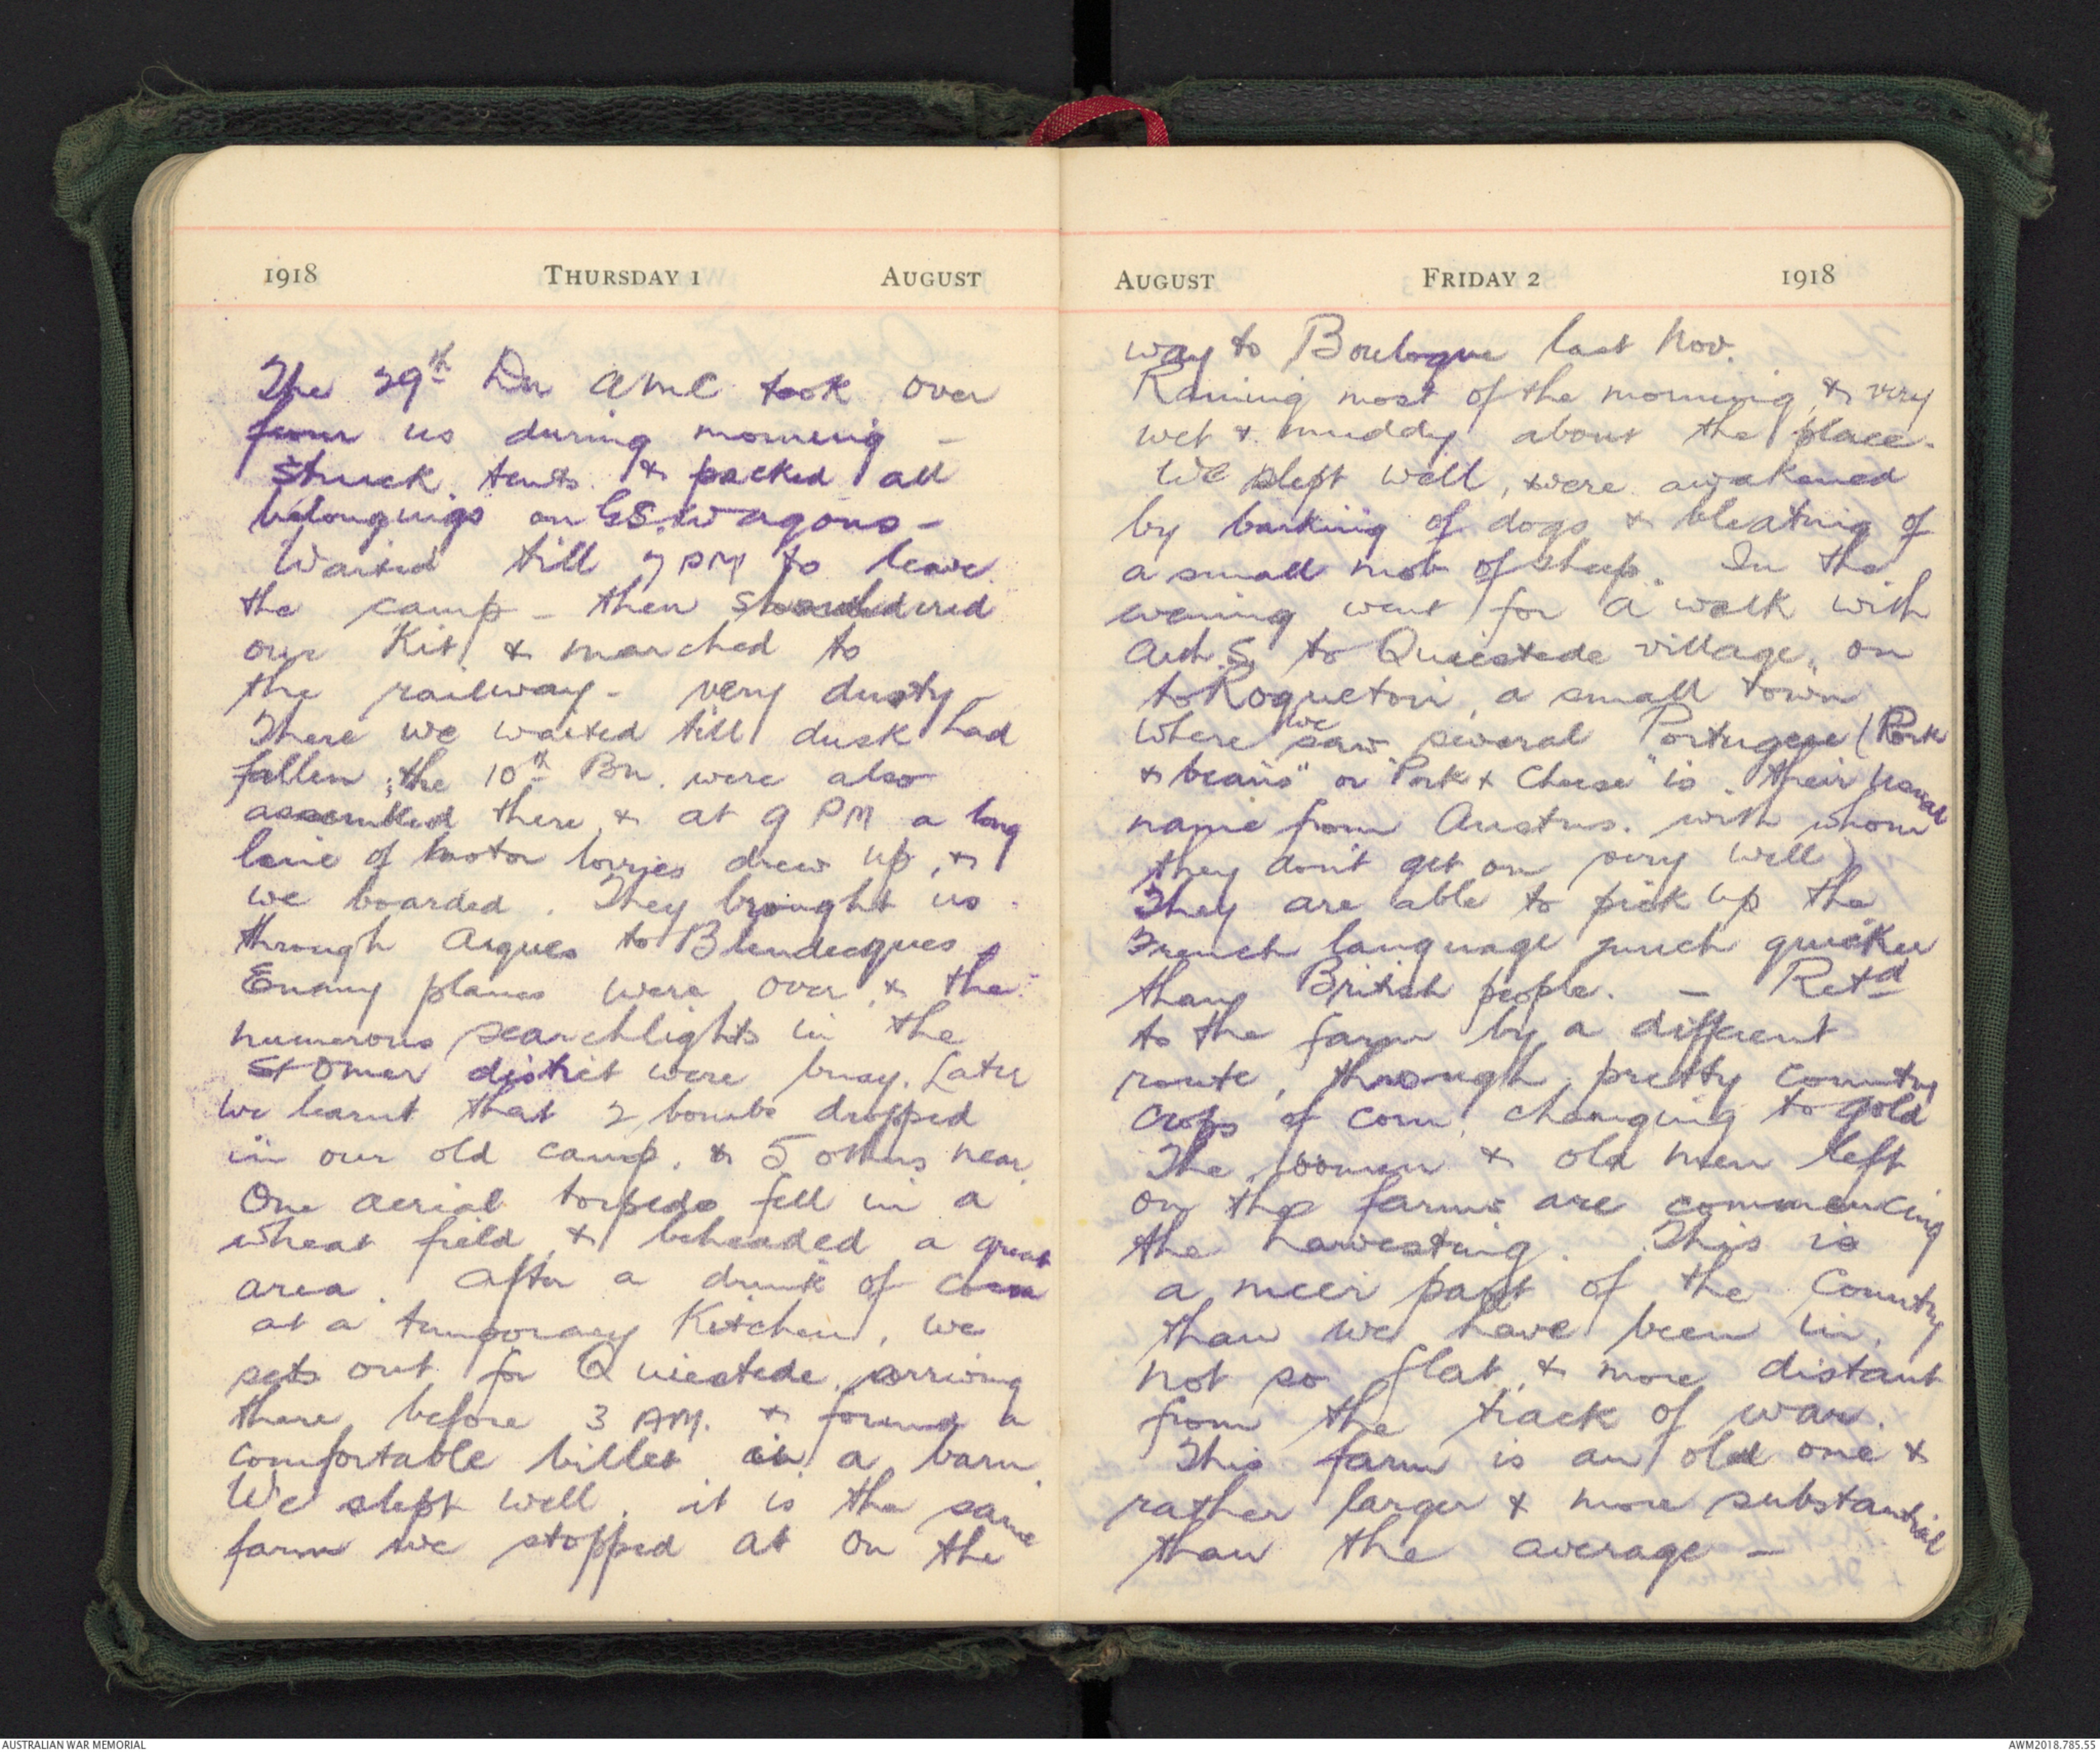 1918 THURSDAY 1 AUGUST
The 29th Dn AMC took over
from us during morning -
struck tents & packed all
belongings on G.S. Wagons -
Waited till 7 PM to leave
the camp - then shouldered
our Kit & marched to
the railway - very dusty -
There we waited till dusk had
fallen; the 10th Bn. were also
assembled there & at 9 PM a long
line of motor lorries drew up, &
we boarded. They brought us
through Arques to Blendecques
Enemy planes were over & the
numerous searchlights in the
St Omer district were busy. Later
we learnt that 2 bombs dropped
in our old camp, & 5 others near
One aerial torpedo fell in a
wheat field & beheaded a great
area. After a drink of cocoa
at a temporary Kitchen, we
sets out for Quiestede, arriving
there before 3 AM. & found a
comfortable billet in a barn.
We slept well, it is the same
farm we stopped at on the
AUGUST FRIDAY 2 1918
way to Boulogne last Nov.
Raining most of the morning, & very
wet & muddy about the place.
We slept well, were awakened
by barking of dogs & bleating of
a small mob of sheep. In the
evening went for a walk with
Auh. S. to Quiestede village, on
to Roquetori, a small town
where we saw several Portugese (Pork
& beans" or "Pork & Cheese" is their usual
name from Austns. with whom
they don't get on very well)
They are able to pick up the
French language much quicker
than British people. - Retd
to the farm by a different
route, through pretty country
crops of corn changing to gold
The women & old men left
on the farms are commencing
the harvesting. This is
a nicer part of the Country
than we have been in,
not so flat, & more distant
from the track of war.
This farm is an old one &
rather larger & more substantial
than the average -
AUSTRALIAN WAR MEMORIAL
AWM2018.785.55